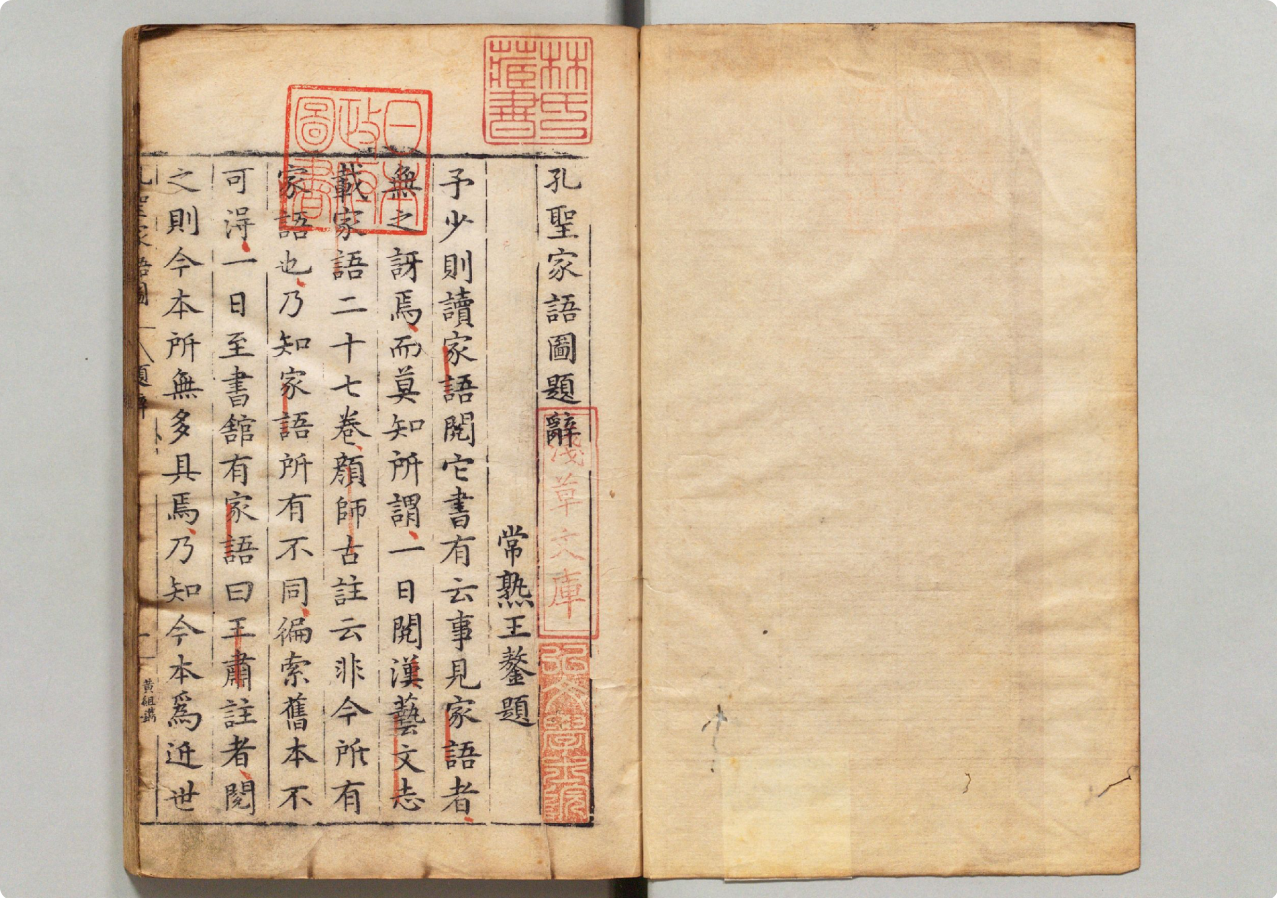 孔聖家語圖題辭
常熟王鏊題
予少則讀家語閱它書有云事見家語者
無之訝焉而莫知所謂一日閱漢藝文志
載家語二十七卷顔師古註云非今所有
家語也乃知家語所有不同徧索舊本不
可淂一日至書舘有家語曰王肅註者閱
之則今本所無多具焉乃知今本爲近世
孔聖家語圖
題辭
一
黃組鐫
林氏藏書
日本政府圖書
淺草文庫